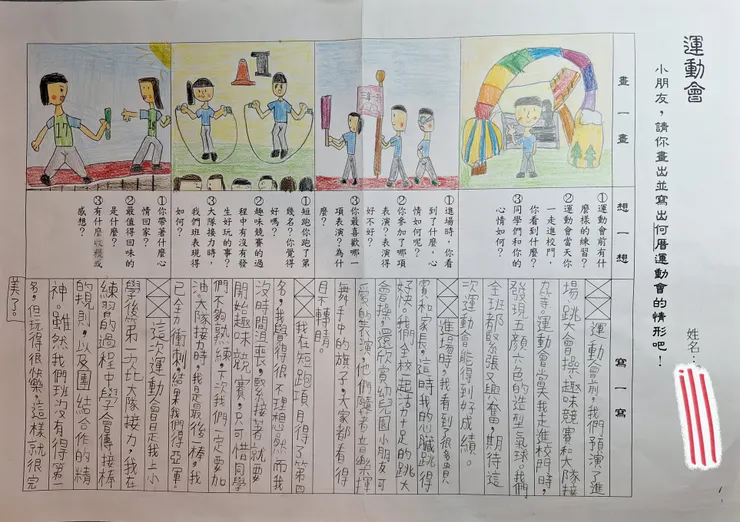 運動會
小朋友，請你畫出並寫出何厝運動會的情形吧！
姓名：
畫一畫
想一想
寫一寫
①運動會前有什
麼樣的練習？
②運動會當天你
一走進校門，
你看到什麼？
③同學們和你的
心情如何？
①進場時，你看
到了什麼，心
情如何呢？
②你參加了哪項
表演？表演得
好不好？
③你最喜歡哪一
項表演？為什
麼？
①短跑你跑了第
幾名？你覺得
好嗎？
②趣味競賽的過
程中有沒有發
生好玩的事？
③大隊接力時，
我們班表現得
如何？
①你帶著什麼心
情回家？
②最值得回味的
是什麼？
③有什麼收穫或
感想？
運動會前，我們預演了進
場、跳大會操、趣味競賽和大隊接
力等。運動會當天我走進校門時，
發現五顏六色的造型氣球。我們
全班都緊張又興奮，期待這
次運動會能得到好成績。
進場時，我看到很多貴
賓和家長，這時我的心臟跳得
好快。我們全校一起活力十足的跳大
會操，還欣賞幼兒園小朋友可
愛的表演，他們隨著音樂揮
舞手中的旗子，大家都看得
目不轉睛。
我在短跑項目得了第四
名，我覺得很不理想，然而我
沒時間沮喪，緊接著就要
開始趣味競賽，只可惜同學
們不夠熟練，下次我們一定要加
油。大隊接力時，我是最後一棒，我
已全力衝刺，結果我們得亞軍。
這次運動會是我上小
學後第一次比大隊接力，我在
練習的過程中學會傳接棒
的規則，以及團結合作的精
神。雖然我們班沒有得第一
名，但玩得很快樂，這樣就很完
美了。
17